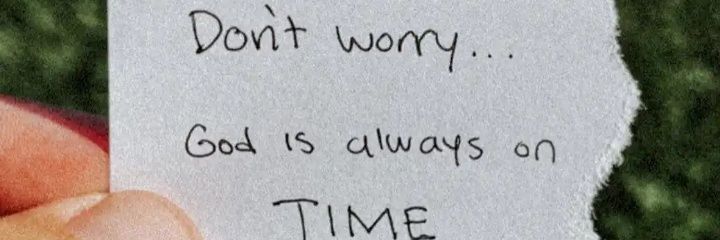 Don't worry...
God is always on
TIME